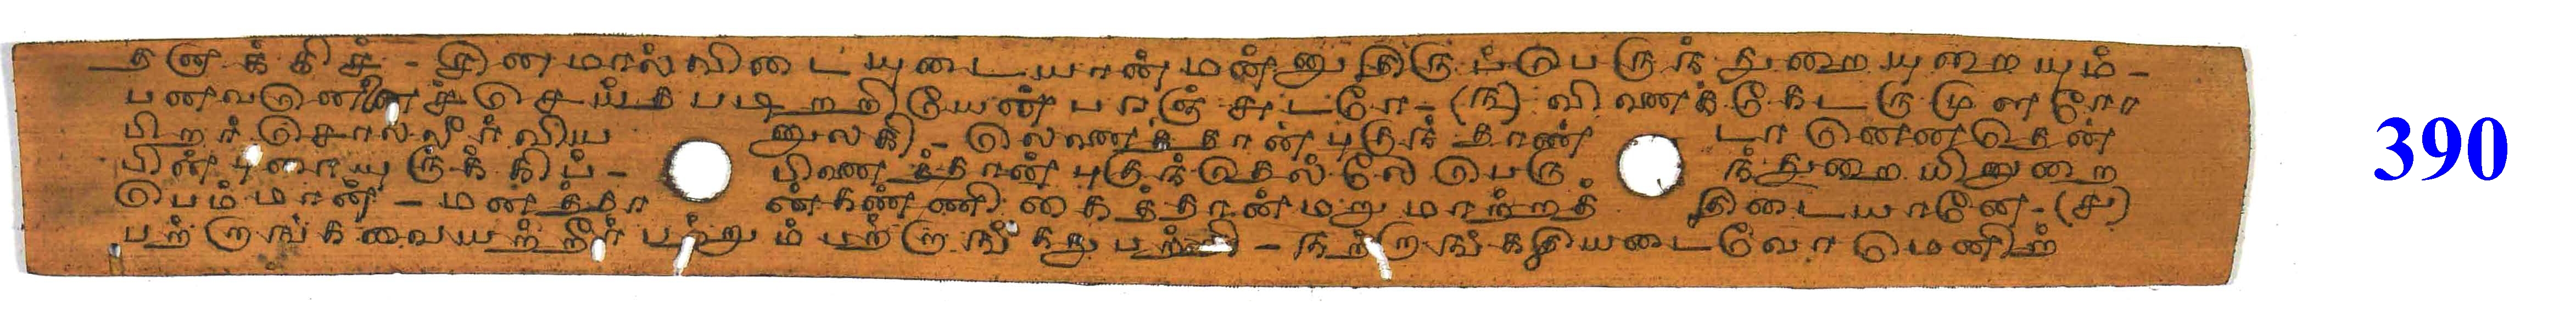 தனாக்கிச் - சினமால்விடையுடையான்மன்னுதிருப்பெருந்துறையுறையும் -
பனவனெனைச்செய்தபடிறறியேன் பரஞ்சுடரே - (௩) வினைக்கேடருமுளரோ
பிறர்சொல்லீர்விய னுலகி - லெனைத்தான்புகுந்தாண் டானெனதென்
பின்புரையுருக்கிப் - பினைத்தான்புகுந்தெல்லே பெரு ந்துறையிலுறை
பெம்மான் - மனத்தா ன்கண்ணிகைத்தான்மறுமாற்றத் திடையானே - (௪)
பற்றாங்கவையற்றீர்பற்றும்பற்றாங்கதுபற்றி - நற்றாங்கதியடைவோமெனிற்